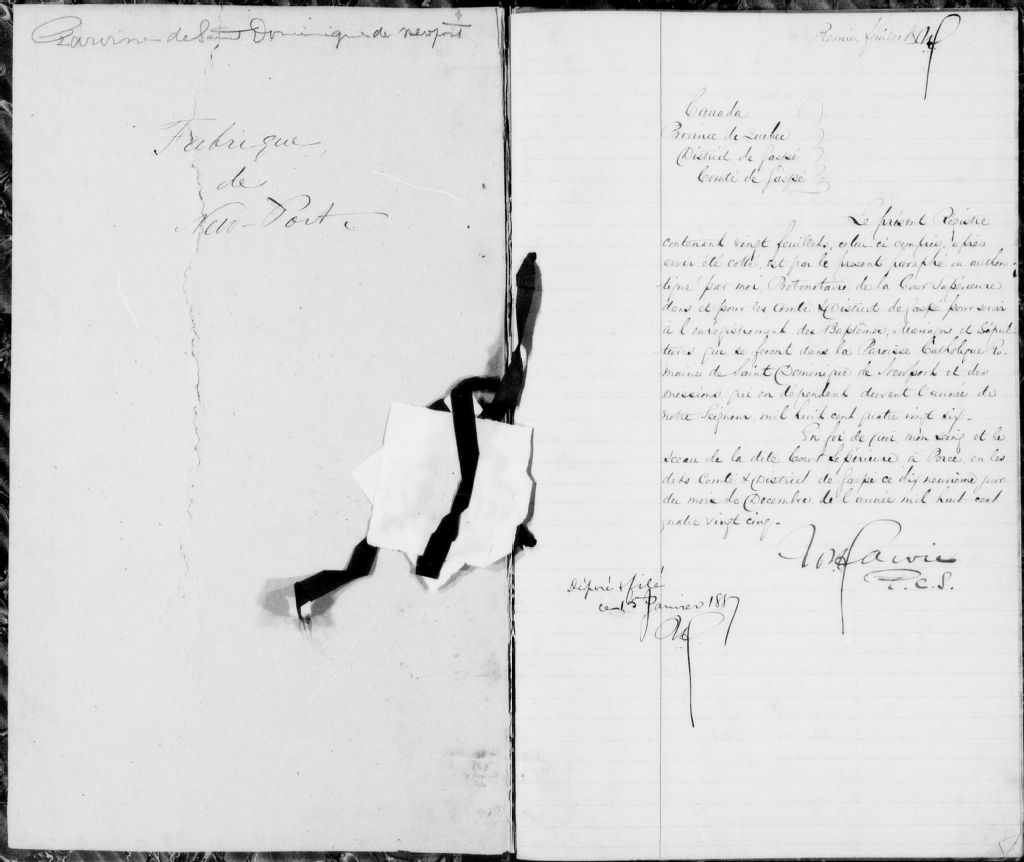 Paroisse de Saint Dominique de Newport
Fabrique
de
New-Port
Premier feuillet
Canada
Province de Quebec
District de Gaspé
Comté de Gaspé
Le présent Registre
contenant vingt feuillets, celui-ci compris, après
avoir été coté, est par le présent paraphé ou authen-
tiqué par moi Protonotaire de la Cour Supérieure
dans et pour les Comté & District de Gaspé pour servir
à l'enregistrement des Baptêmes, Mariages et Sépul-
tures qui se feront dans la Paroisse Catholique Ro-
maine de Saint Domenique de Newport et des
missions qui en dépendent durant l'année de
notre Seigneur, mil huit cent quatre vingt six.-
En foi de quoi, mon seing et le
sceau de la dite Cour Supérieure à Percé, en les
dits Comté & District de Gaspé ce dix neuvième jour
du mois de Décembre, de l'année mil huit cent
quatre vingt cinq.-
P.C.S.
Déposé & filé
ce 15 Janvier 1887